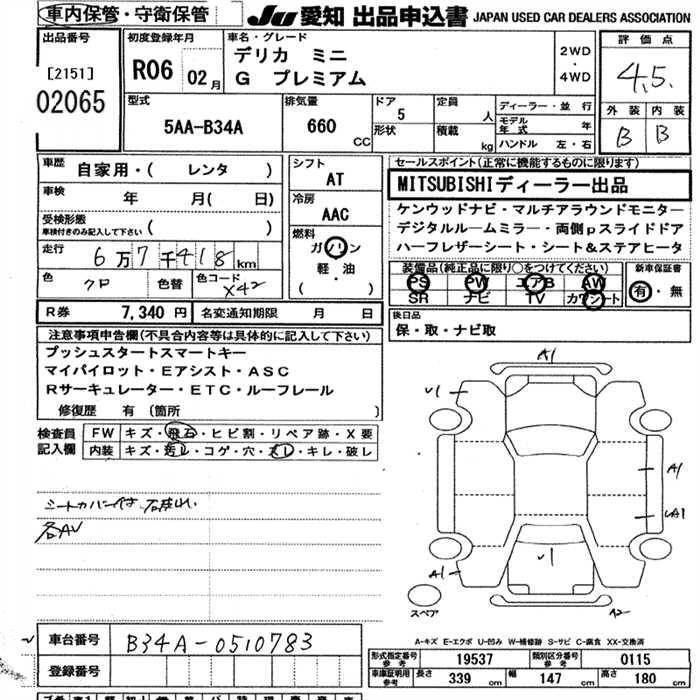 車内保管・守衛保管
JU 愛知 出品申込書 JAPAN USED CAR DEALERS ASSOCIATION
出品番号
[2151]
02065
初度登録年月
R06 02月
車名・グレード
デリカ ミニ
G プレミアム
2WD
・
4WD
評価点
4.5
外装 内装
B B
型式
5AA-B34A
排気量
660
CC
ドア
5
形状
定員
人
積載
kg
ディーラー・並行
モデル年式 年
ハンドル 左・右
車歴
自家用・( レンタ )
車検
年 月( 日)
受検形態
車検付きのみ記入して下さい ( )
走行
6万7千418km
色
クロ
色替
色コード
X42
シフト
AT
冷房
AAC
燃料
ガソリン
・
軽・油
( )
セールスポイント(正常に機能するものに限ります)
MITSUBISHIディーラー出品
ケンウッドナビ・マルチアラウンドモニター
デジタルルームミラー・両側pスライドドア
ハーフレザーシート・シート&ステアヒータ
装備品(純正品に限り○をつけてください)
PS PW エアB AW
SR ナビ TV カワシート
新車保証書
有・無
R券 7,340円 名変通知期限 月 日
後日品
保・取・ナビ取
注意事項申告欄(不具合内容等は具体的に記入して下さい)
プッシュスタートスマートキー
マイパイロット・Eアシスト・ASC
Rサーキュレーター・ETC・ルーフレール
修復歴 有(箇所 )
検査員
記入欄
FW キズ・飛石・ヒビ割・リペア跡・X要
内装 キズ・汚レ・コゲ・穴・スレ・キレ・破レ
シートカバー付
各AU
A1
U1
A1
UA1
U1
A1
A2
スペア
A-キズ E-エクボ U-凹み W-補修跡 S-サビ C-腐食 XX-交換済
車台番号
B34A-0510783
登録番号
形式指定番号
参考
19537
類別区分番号
参考
0115
車庫証明資料
参考
長さ 339 cm 幅 147 cm 高さ 180 cm